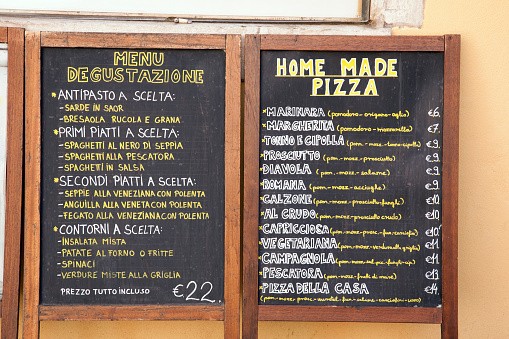 MENU
DEGUSTAZIONE
*ANTIPASTO A SCELTA:
-SARDE IN SAOR
-BRESAOLA RUCOLA E GRANA
*PRIMI PIATTI A SCELTA:
-SPAGHETTI AL NERO DI SEPPIA
-SPAGHETTI ALLA PESCATORA
-SPAGHETTI IN SALSA
*SECONDI PIATTI A SCELTA:
-SEPPIE ALLA VENEZIANA CON POLENTA
-ANGUILLA ALLA VENETA CON POLENTA
-FEGATO ALLA VENEZIANA CON POLENTA
*CONTORNI A SCELTA:
-INSALATA MISTA
-PATATE AL FORNO O FRITTE
-SPINACI
-VERDURE MISTE ALLA GRIGLIA
PREZZO TUTTO INCLUSO €22.
HOME MADE
PIZZA
*MARINARA (pomodoro-origano-aglio) €6
*MARGHERITA (pomodoro-mozzarella) €7
*TONNO E CIPOLLA (pom.-mozz.-tonno-cipolla) €9
*PROSCIUTTO (pom.-mozz.-prosciutto) €9
*DIAVOLA (pom.-mozz.-salame) €9
*ROMANA (pom.-mozz.-acciughe) €9
*CALZONE (pom.-mozz.-prosciutto-funghi) €10
*AL CRUDO (pom.-mozz.-prosciutto crudo) €10
*CAPRICCIOSA (pom.-mozz.-prosc.-fun.-carciofi) €10
*VEGETARIANA (pom.-mozz.-verdura alla griglia) €11
*CAMPAGNOLA (pom.-mozz.-sal.pic.-funghi-cip.) €11
*PESCATORA (pom-mozz-frutti di mare) €13
*PIZZA DELLA CASA €14
(pom-mozz-prosc-wurstel-fun-salame-carciofini-uovo)